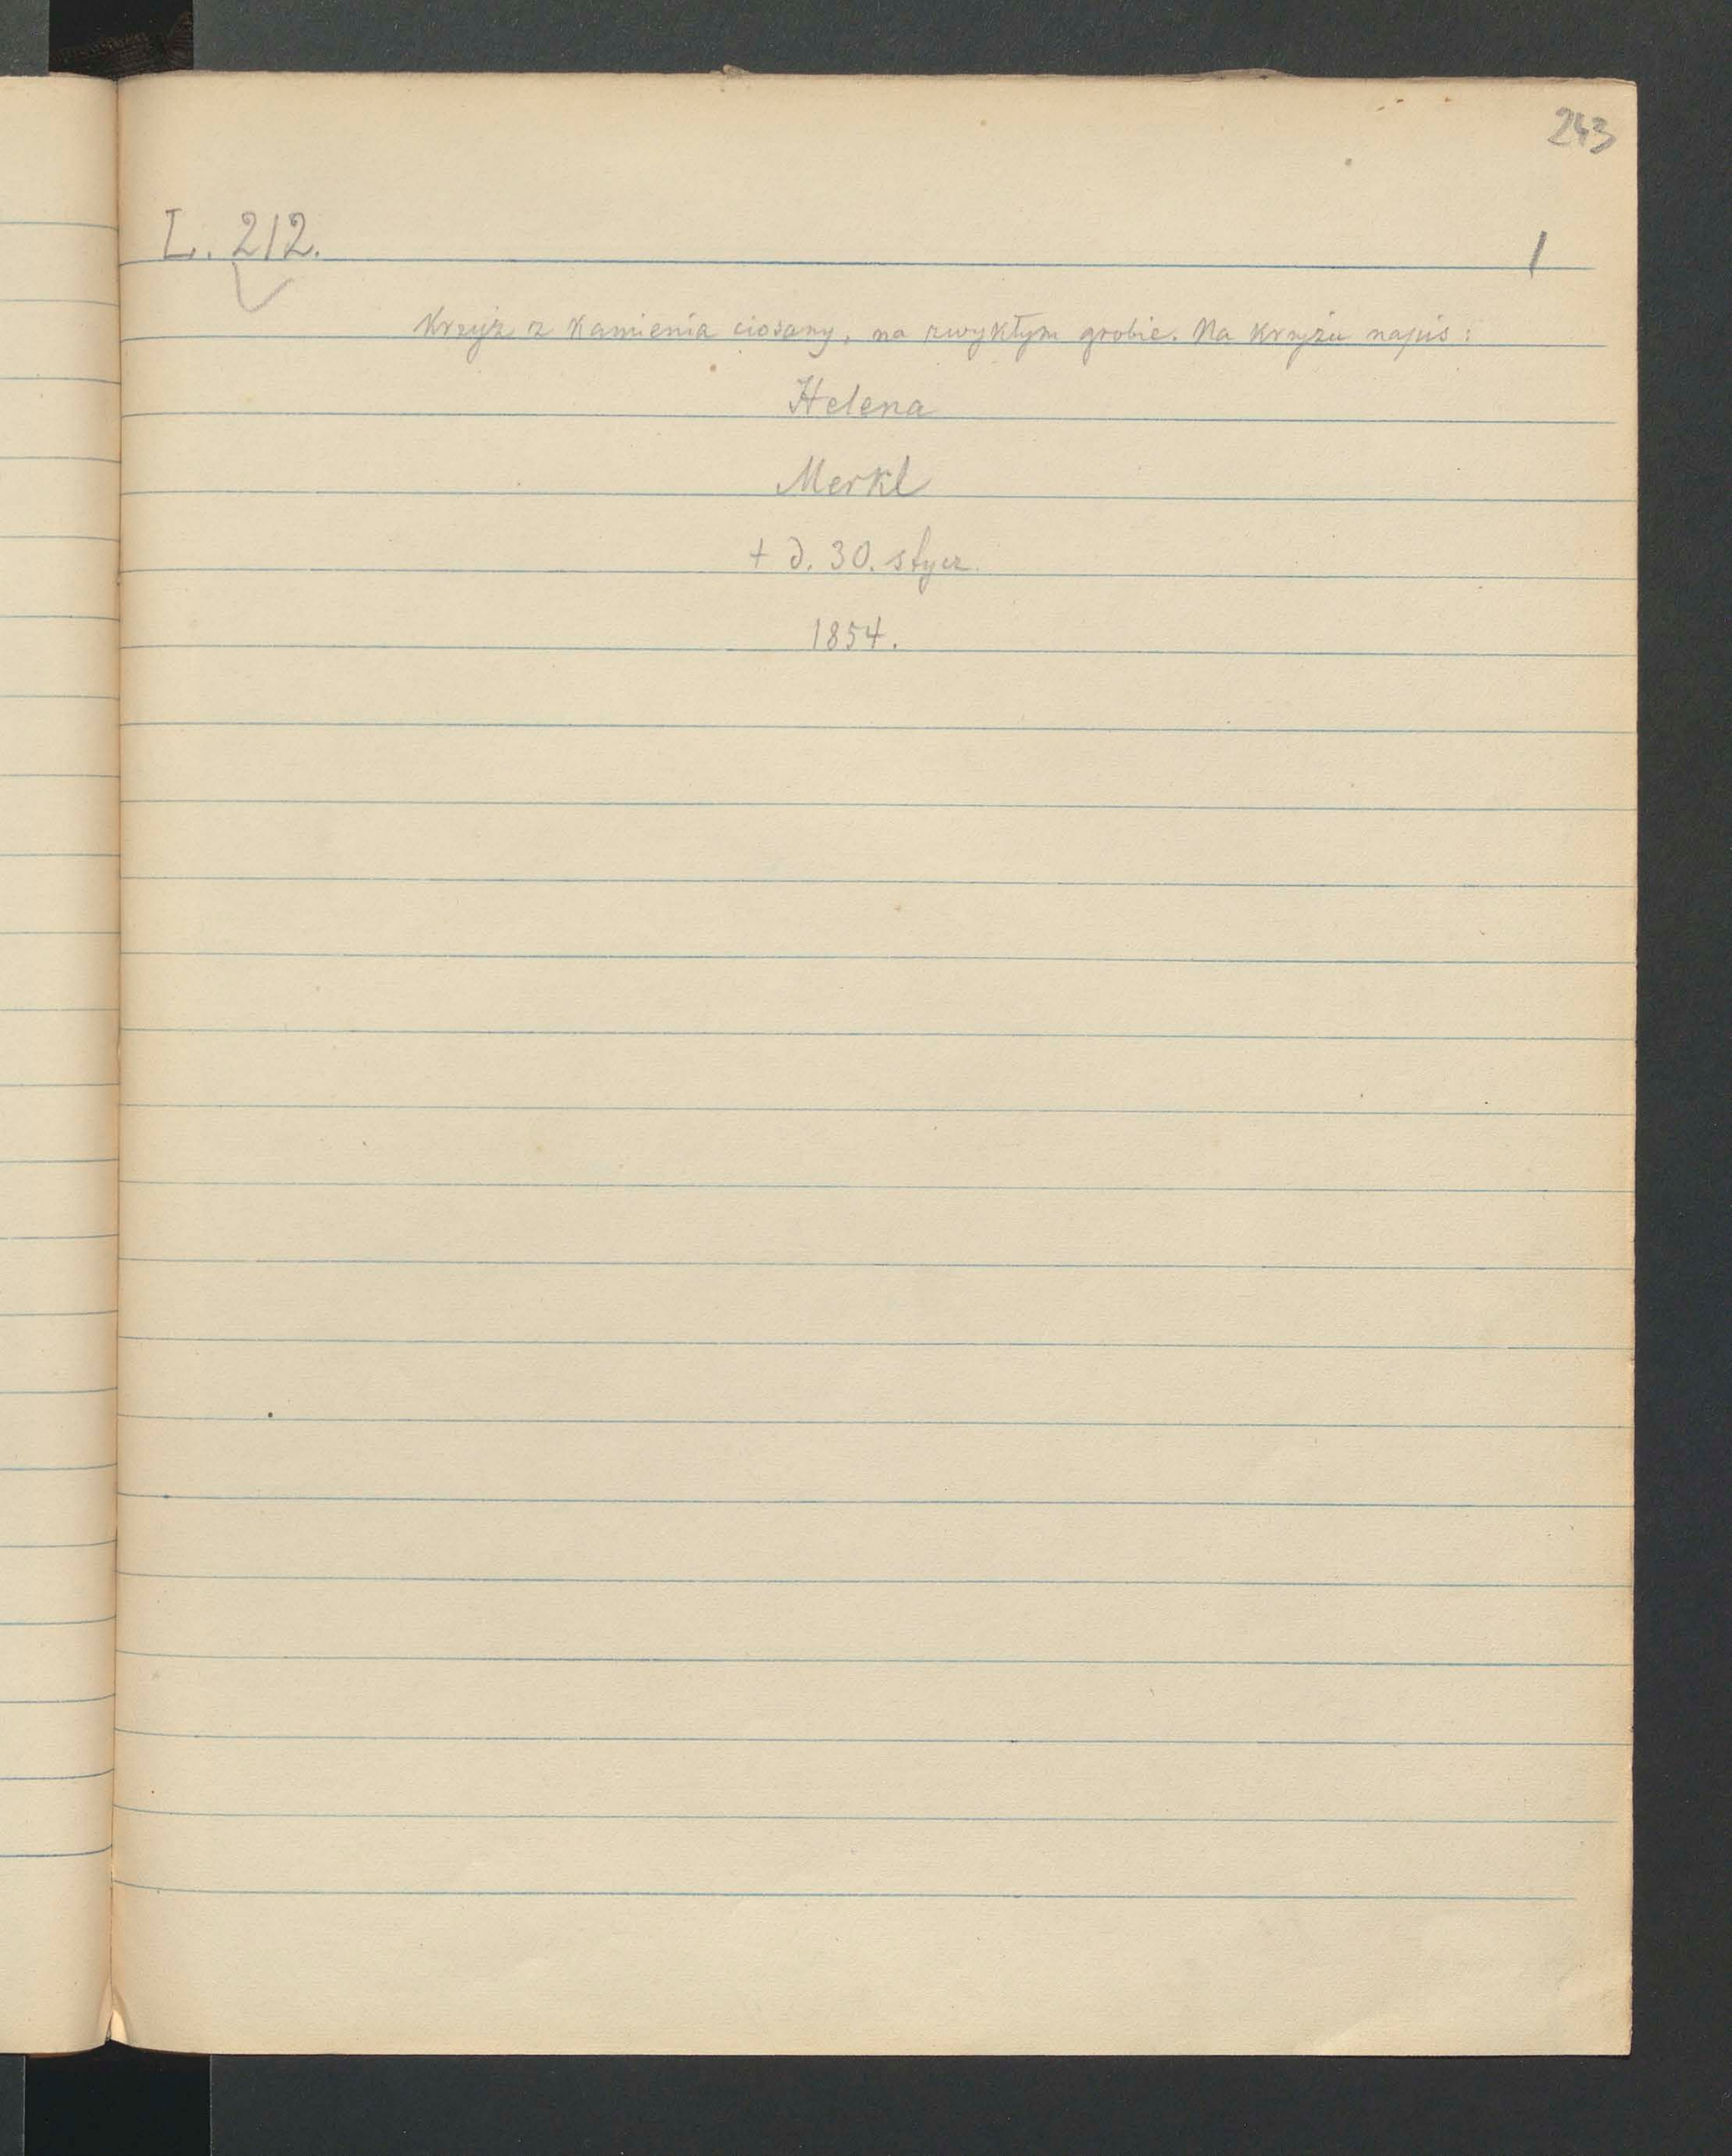 243
L. 212.
1
Krzyż z kamienia ciosany, na zwykłym grobie. Na krzyżu napis:
Helena
Merkl
+ d. 30. stycz.
1854.